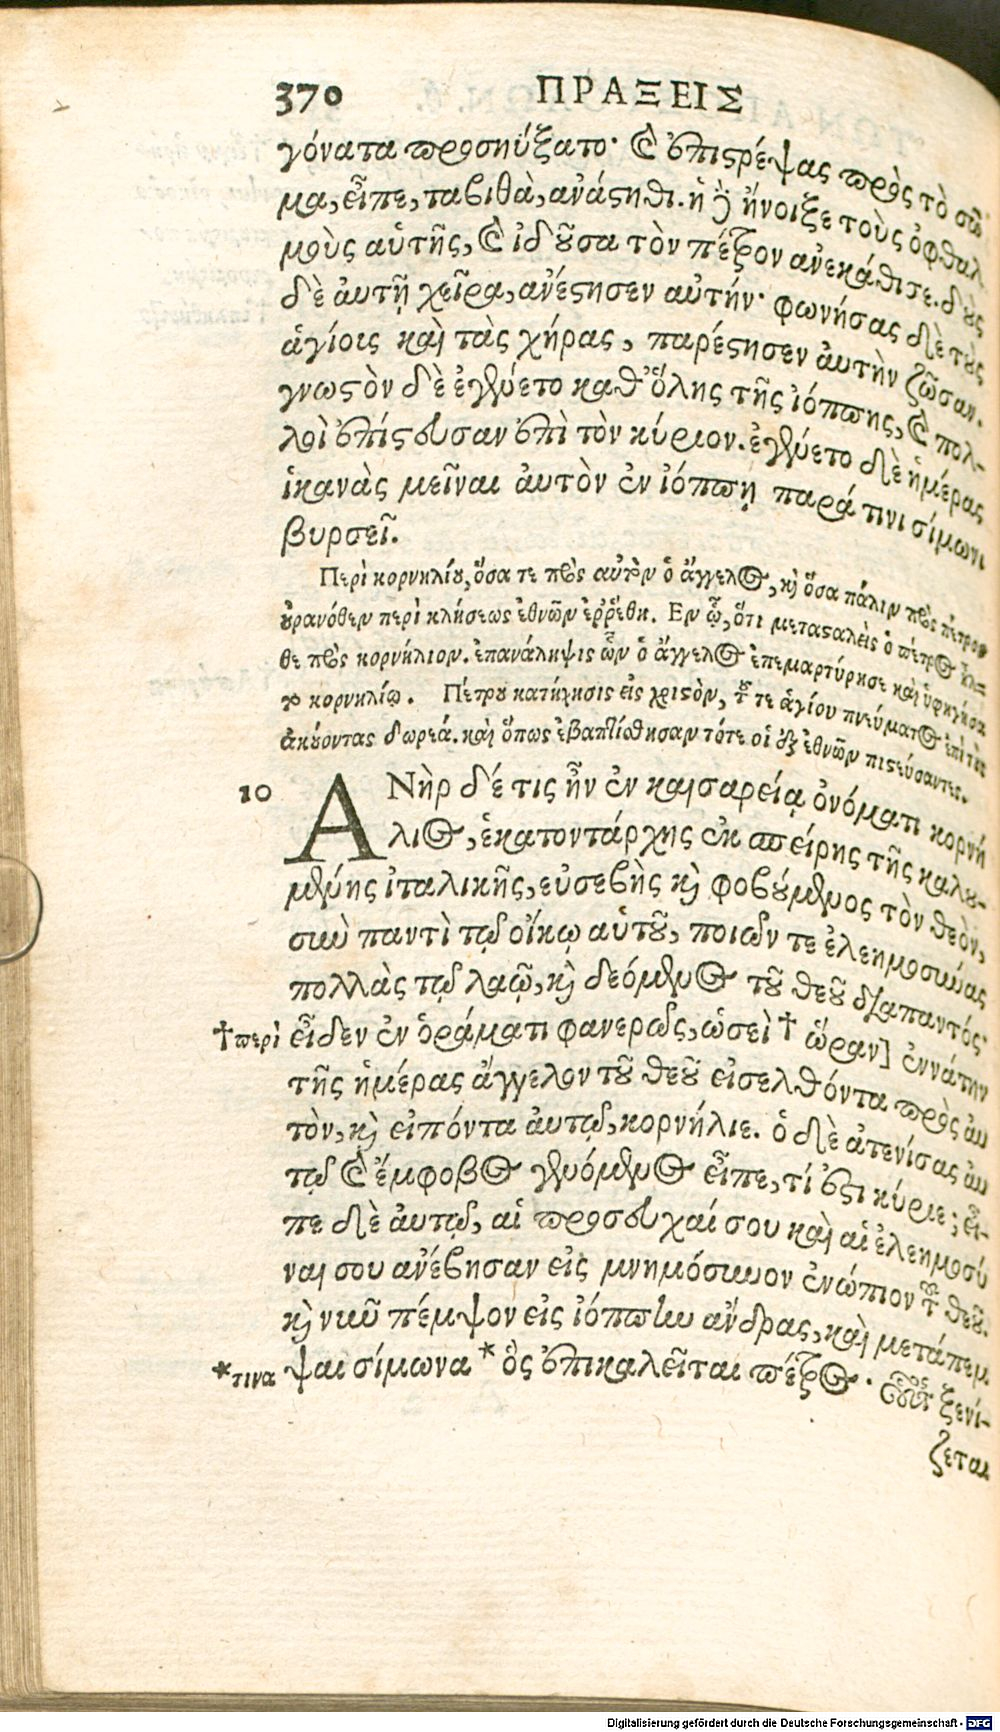 370 ΠΡΑΞΕΙΣ
γόνατα προσηύξατο· καὶ ἐπιστρέψας πρὸς τὸ σῶ
μα, εἶπε, ταβιθὰ, ἀνάστηθι. ἡ δὲ ἤνοιξε τοὺς ὀφθαλ
μοὺς αὑτῆς, καὶ ἰδοῦσα τὸν πέτρον ἀνεκάθισε. δοὺς
δὲ ἀυτῇ χεῖρα, ἀνέστησεν αὐτήν· φωνήσας δὲ τοὺς
ἁγίοις καὶ τὰς χήρας, παρέστησεν ἀυτὴν ζῶσαν.
γνωστὸν δὲ ἐγένετο καθ' ὅλης τῆς ἰόππης, καὶ πολ-
λοὶ ἐπίστευσαν ἐπὶ τὸν κύριον. ἐγένετο δὲ ἡμέρας
ἱκανὰς μεῖναι ἀυτὸν ἐν ἰόππῃ παρά τινι σίμωνι
βυρσεῖ.
Περὶ κορνηλίου, ὅσα τε πρὸς αὐτὸν ὁ ἄγγελος, καὶ ὅσα πάλιν πρὸς πέτρον
οὐρανόθεν περὶ κλήσεως ἐθνῶν ἐῤῥέθη. Εν ᾧ, ὅτι μεταςαλεὶς ὁ πέτρος ἦλ=
θε πρὸς κορνήλιον. ἐπανάληψις ὧν ὁ ἄγγελος ἐπεμαρτύρησε καὶ ὑφηγήσα
το κορνηλίῳ. Πέτρου κατήχησις εἰς χριστὸν, τοῦ τε ἁγίου πνεύματος ἐπὶ τοὺς
ἀκούοντας δωρεά. καὶ ὅπως ἐβαπτίσθησαν τότε οἱ ἐξ ἐθνῶν πιστεύσαντες.
10 ΑΝὴρ δέ τις ἦν ἐν καισαρείᾳ ὀνόματι κορνή
λιος, ἑκατοντάρχης ἐκ σπείρης τῆς καλου-
μένης ἰταλικῆς, εὐσεβὴς καὶ φοβούμενος τὸν θεὸν,
σὺν παντὶ τῷ οἴκῳ αὑτοῦ, ποιῶν τε ἐλεημοσύνας
πολλὰς τῷ λαῷ, καὶ δεόμενος τοῦ θεοῦ διαπαντός·
†περὶ εἶδεν ἐν ὁράματι φανερῶς, ὡσεὶ † ὥραν] ἐννάτην
τῆς ἡμέρας ἄγγελον τοῦ θεοῦ εἰσελθόντα πρὸς ἀυ
τὸν, καὶ εἰπόντα ἀυτῷ, κορνήλιε. ὁ δὲ ἀτενίσας ἀυ
τῷ καὶ ἔμφοβος γενόμενος εἶπε, τί ἐστι κύριε; εἶ-
πε δὲ ἀυτῷ, αἱ προσευχαί σου καὶ αἱ ἐλεημοσύ
ναι σου ἀνέβησαν εἰς μνημόσυνον ἐνώπιον τοῦ θεοῦ.
καὶ νῦν πέμψον εἰς ἰόππην ἄνδρας, καὶ μετάπεμ
*τινα ψαι σίμωνα * ὃς ἐπικαλεῖται πέτρος· οὗτος ξενί-
ζεται
Digitalisierung gefördert durch die Deutsche Forschungsgemeinschaft - DFG